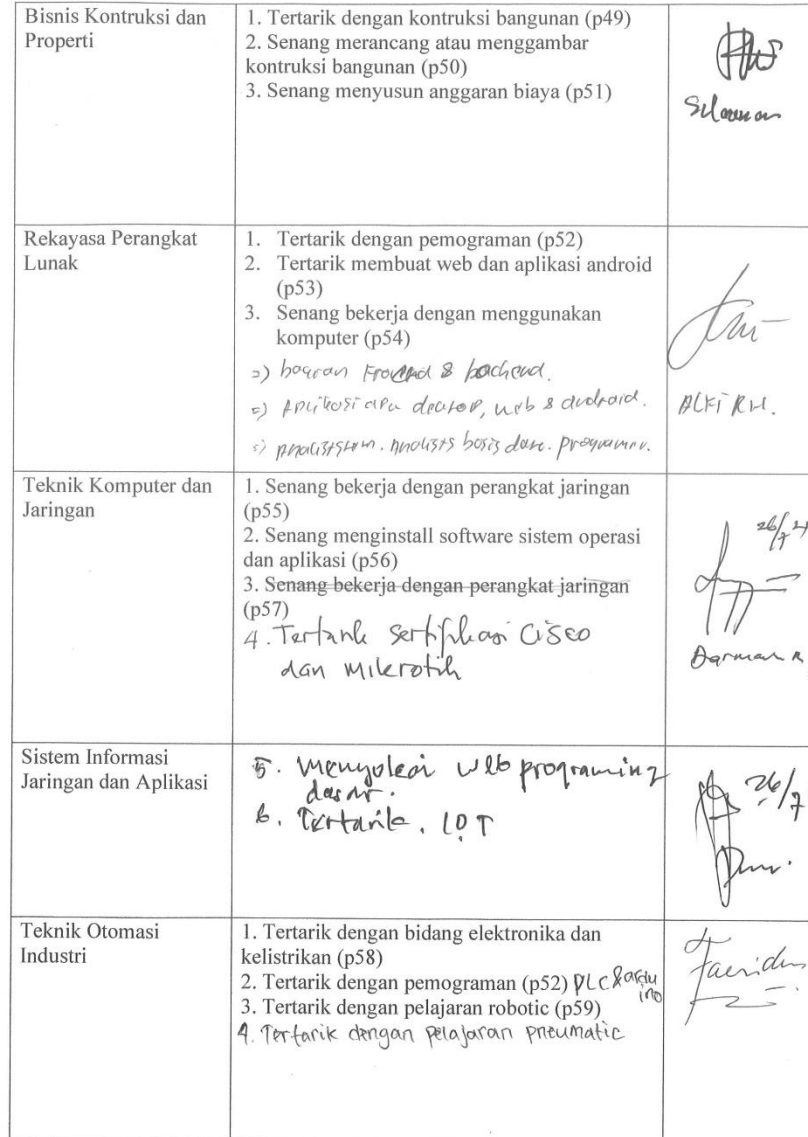 Bisnis Kontruksi dan
Properti
1. Tertarik dengan kontruksi bangunan (p49)
2. Senang merancang atau menggambar
kontruksi bangunan (p50)
3. Senang menyusun anggaran biaya (p51)
Rekayasa Perangkat
Lunak
1. Tertarik dengan pemograman (p52)
2. Tertarik membuat web dan aplikasi android
(p53)
3. Senang bekerja dengan menggunakan
komputer (p54)
& backend.
web & android.
basis data. programmer.
ALFI RH.
Teknik Komputer dan
Jaringan
1. Senang bekerja dengan perangkat jaringan
(p55)
2. Senang menginstall software sistem operasi
dan aplikasi (p56)
3. Senang bekerja dengan perangkat jaringan
(p57)
4. Tertarik sertifikasi Cisco
dan Mikrotik
26/7
Darman R
Sistem Informasi
Jaringan dan Aplikasi
5. Menyukai web programing
dasar.
6. Tertarik. IOT
26/7
Teknik Otomasi
Industri
1. Tertarik dengan bidang elektronika dan
kelistrikan (p58)
2. Tertarik dengan pemograman (p52) PLC & ardu
ino
3. Tertarik dengan pelajaran robotic (p59)
4. Tertarik dengan pelajaran pneumatic